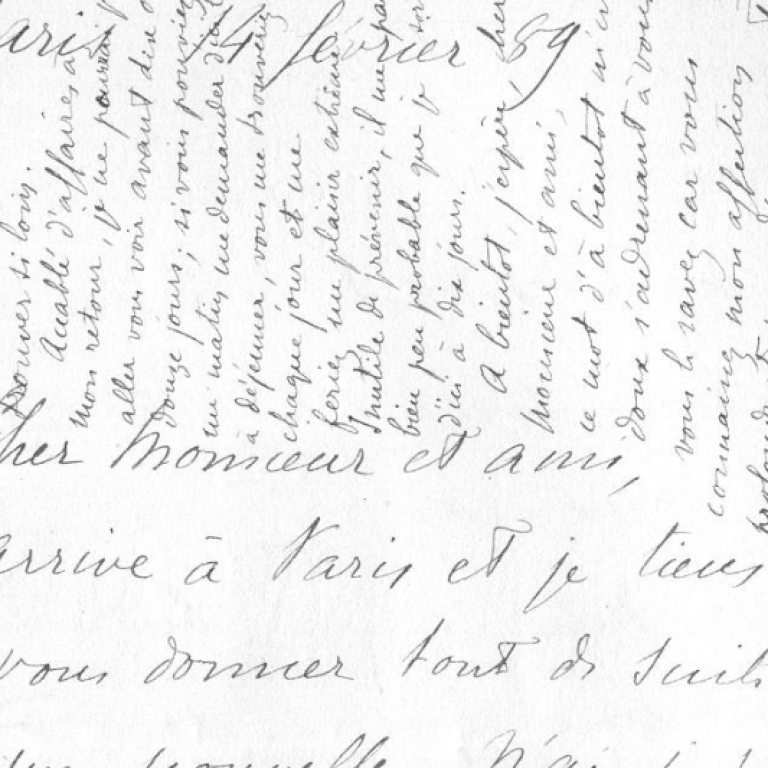 Paris 14 février 89
Cher Monsieur et ami,
arrive à Paris et je tiens
vous donner tout de suite
nouvelle. N'ai
trouver si loin.
Accablé d'affaires à
mon retour, je ne pourrai
aller vous voir avant dix
douze jours, si vous pouviez
un matin me demander
à déjeuner, vous me trouveriez
chaque jour et me
feriez un plaisir extrême
Inutile de prévenir, il me
bien peu probable que je
d'ici à dix jours.
A bientôt, j'espère, cher
Monsieur et ami,
ce mot d'à bientôt
doux s'adressant à vous
vous le savez car vous
connaissez mon affection
profonde